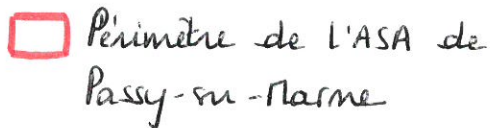 Périmètre de l'ASA de
Passy-sur-Marne